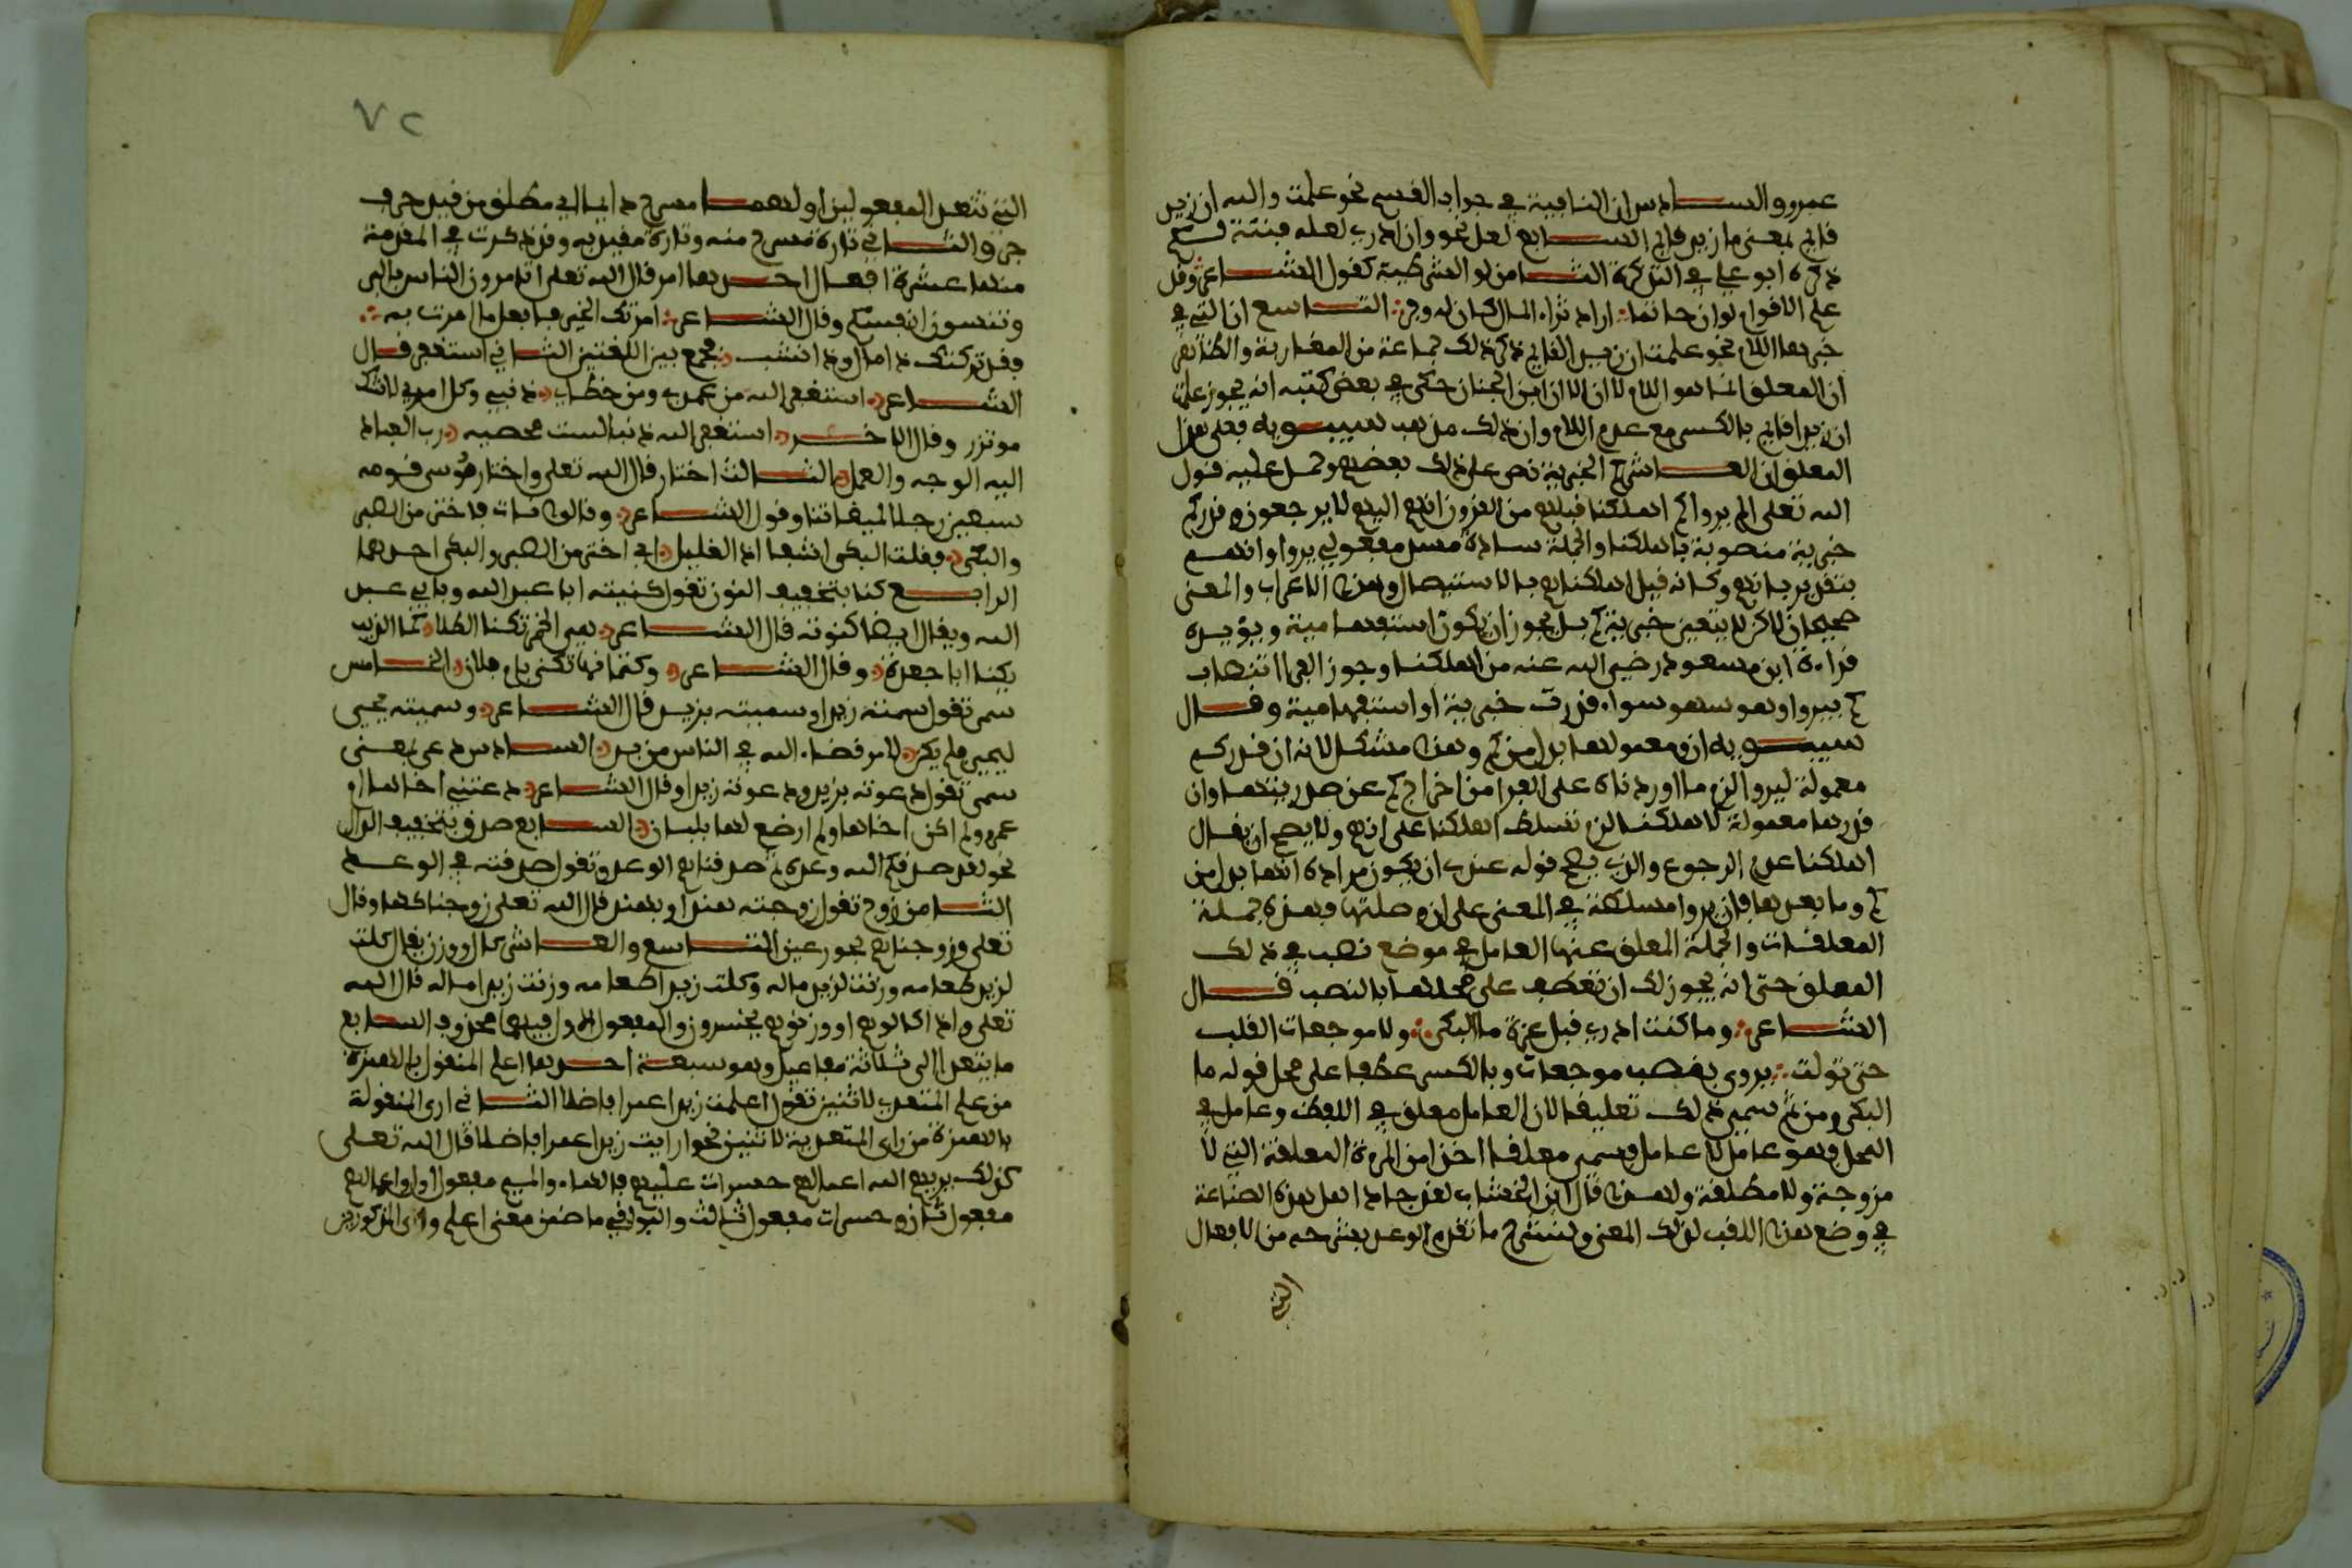 عمرو والسادس ان النافية في جواب القسم نحو علمت والله ان زيد
قائم بمعنى ما زيد قائم السابع لعل نحو وان ادري لعله فتنة لكم
ذكره ابو علي في التذكرة الثامن لو الشرطية كقول الشاعر وقد
علم الاقوام لو ان حاتما اراد ثراء المال كان له وفر التاسع ان التي في
خبرها اللام نحو علمت ان زيدا لقائم ذكر ذلك جماعة من المغاربة والظاهر
ان المعلق انما هو اللام لا ان الا ان ابن الخباز حكى في بعض كتبه انه يجوز علمت
ان زيدا قائم بالكسر مع عدم اللام وان ذلك مذهب سيبويه فعلى هذا
المعلق ان العاشر كم الخبرية نص على ذلك بعضهم وحمل عليه قول
الله تعلى الم يروا كم اهلكنا قبلهم من القرون انهم اليهم لا يرجعون وقدر كم
خبرية منصوبة باهلكنا والجملة سادة مسد مفعولي يروا وانهم
بتقدير بانهم وكانه قيل اهلكناهم بالاستيصال وهذا الاعراب والمعنى
صحيحان لاكن لا يتعين خبرية كم بل يجوز ان يكون استفهامية ويؤيده
قراءة ابن مسعود رضي الله عنه من اهلكنا وجوز الفرا انتصاب
كم بيروا وهو سهو سواء قدرت خبرية او استفهامية وقال
سيبويه ان ومعمولاها بدل من كم وهذا مشكل لانه ان قدر كم
معمولة ليروا لزم ما اوردناه على الفرا من اخراج كم عن صدريتها وان
قدرها معمولة لاهلكنا لزم تسلط اهلكنا على انهم ولا يصح ان يقال
اهلكنا عدم الرجوع والذي يصحح قوله عندي ان يكون مراده انها بدل من
كم وما بعدها فان يروا مسلطة في المعنى على ان وصلتها فهذه جملة
المعلقات والجملة المعلق عنها العامل في موضع نصب في ذلك
المعلق حتى انه يجوز لك ان تعطف على محلها بالنصب قال
الشاعر وما كنت ادري قبل عزة ما البكى ولا موجعات القلب
حتى تولت يروى بنصب موجعات وبالكسر عطفا على محل قوله ما
البكى ومن ثم سمي ذلك تعليقا لان العامل معلق في اللفظ وعامل في
المحل فهو عامل لا عامل فسمي معلقا اخذا من المرءة المعلقة التي لا
مزوجة ولا مطلقة ولهذا قال ابن الخشاب لقد جاد اهل هذه الصناعة
في وضع هذا اللقب لذلك المعنى ولنشرح ما تقدم الوعد بشرحه من الافعال
التي
٧٢
التي تتعدى لمفعولين اولهما مسرح دايما اي مطلق من قيد حرف
جر والثاني تارة مسرح منه وتارة مقيد به وقد ذكرت في المقدمة
منها عشرة افعال احدها امر قال الله تعلى اتامرون الناس بالبر
وتنسون انفسكم وقال الشاعر امرتك الخير فافعل ما امرت به
فقد تركتك ذا مال وذا نشب فجمع بين اللغتين الثاني استغفر قال
الشاعر استغفر الله من عمدي ومن خطاي ذنبي وكل امرئ لا شك
موتزر وقال الاخر استغفر الله ذنبا لست محصيه رب العباد
اليه الوجه والعمل الثالث اختار قال الله تعلى واختار موسى قومه
سبعين رجلا لميقاتنا وقول الشاعر وقالوا نات فاختر من الصبر
والبكى فقلت البكى اشفى اذا لغليل اي اختر من الصبر والبكى احدهما
الرابع كنا بتخفيف النون تقول كنيته ابا عبد الله وبابي عبد
الله ويقال ايضا كنوته قال الشاعر هي الخمر تكنا الطلا كما الذيب
يكنا ابا جعدة وقال الشاعر وكتمانها تكنى بام فلان الخامس
سمى تقول سميته زيدا وسميته بزيد قال الشاعر وسميته يحيى
ليحيى فلم يكن لامر قضاه الله في الناس من بد السادس دعى بمعنى
سمى تقول دعوته بزيد ودعوته زيدا وقال الشاعر دعتني اخاها ام
عمرو ولم اكن اخاها ولم ارضع لها بلبان السابع صدق بتخفيف الدال
نحو لقد صدقكم الله وعده ثم صدقناهم الوعد وتقول صدقته في الوعد
الثامن زوج تقول زوجته هندا وبهند قال الله تعلى زوجناكها وقال
تعلى وزوجناهم بحور عين التاسع والعاشر كال ووزن يقال كلت
لزيد طعامه وزنت لزيد ماله وكلت زيدا طعامه وزنت زيدا ماله قال الله
تعلى واذا كالوهم او وزنوهم يخسرون والمفعول الاول فيهما محذوف السابع
ما يتعدى الى ثلاثة مفاعيل وهو سبعة احدها اعلم المنقول بالهمزة
من علم المتعدي لاثنين تقول اعلمت زيدا عمرا فاضلا الثاني ارى المنقولة
بالهمزة من راى المتعدية لاثنين نحو اريت زيدا عمرا فاضلا قال الله تعلى
كذلك يريهم الله اعمالهم حسرات عليهم فالهاء والميم مفعول اول واعمالهم
مفعول ثان وحسرات مفعول ثالث والبواقي ما ضمن معنى اعلم وارى المذكورين